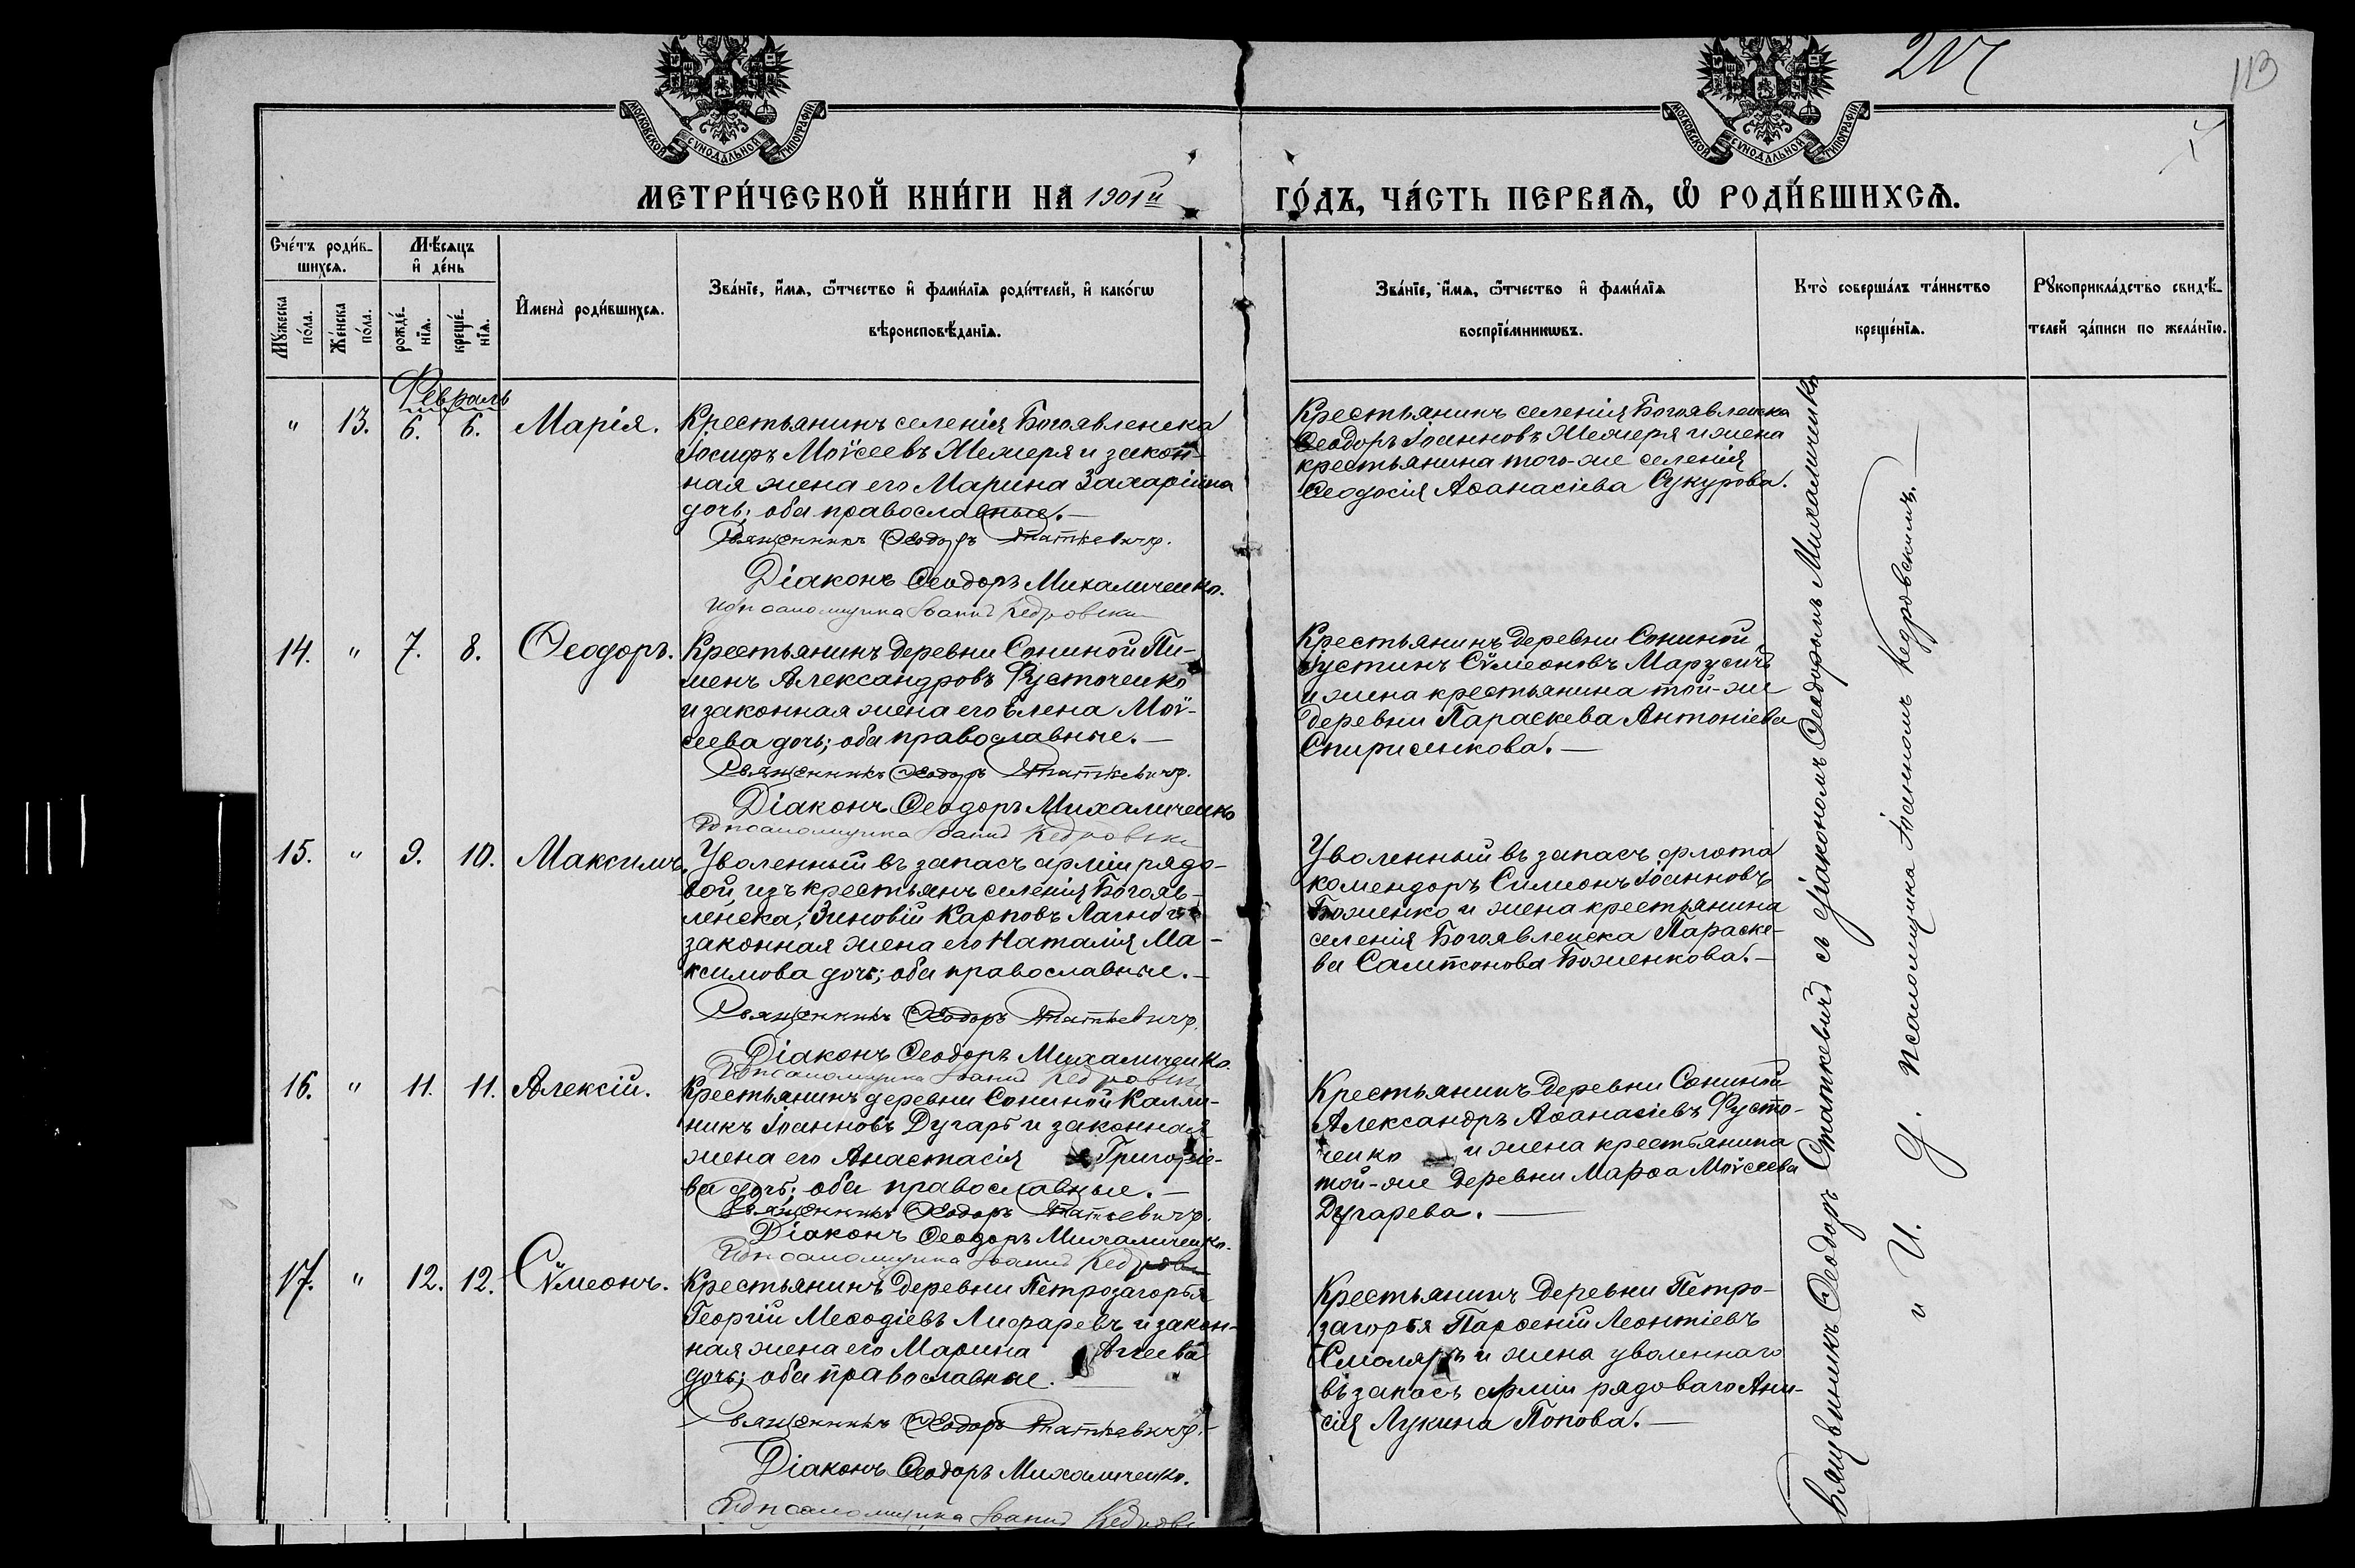 217
113
МОСКОВСКОЙ СѴНОДАЛЬНОЙ ТИПОГРАФІИ
МОСКОВСКОЙ СѴНОДАЛЬНОЙ ТИПОГРАФІИ
МЕТРИ́ЧЕСКОЙ КНИ́ГИ НА 1901й
ГО́ДЪ, ЧА́СТЬ ПЕРВАѦ, Ѡ РОДИ́ВШИХСѦ.
Сче́тъ роди́в-
шихсѧ.
Мѣ́сѧцъ
и҆ де́нь
Мꙋ́жеска
по́ла.
Же́нска
по́ла.
рожде́-
нїѧ.
креще́-
нїѧ.
И҆мена̀ роди́вшихсѧ.
Зва́нїе, и҆́мѧ, ѻ҆́тчество и҆ фами́лїѧ роди́телей, и҆ како́гѡ
вѣроисповѣ́данїѧ.
Зва́нїе, и҆́мѧ, ѻ҆́тчество и҆ фами́лїѧ
воспрїе́мникѡвъ.
Кто̀ соверша́лъ та́инство
креще́нїѧ.
Рꙋкоприкла́дство свидѣ́-
телей за́писи по жела́нїю.
Февраль
" 13. 6. 6. Марія.
Крестьянинъ селенія Богоявленска
Іосифъ Моѵсеевъ Жемеря и закон-
ная жена его Марина Захаріина
дочь; оба православные.—
Священникъ Ѳеодоръ Статкевичъ.
Діаконъ Ѳеодоръ Михаличенко.
И д псаломщика Іоаннъ Кедровскій
Крестьянинъ селенія Богоявленска
Ѳеодоръ Іоанновъ Жемеря и жена
крестьянина того-же селенія
Ѳеодосія Аѳанасіева Сукурова.
14. " 7. 8. Ѳеодоръ.
Крестьянинъ деревни Сониной Пи-
менъ Александровъ Фусточенко
и законная жена его Елена Моѵ-
сеева дочь; оба православные.—
Священникъ Ѳеодоръ Статкевичъ.
Діаконъ Ѳеодоръ Михаличенко
И д псаломщика Іоаннъ Кедровскій
Крестьянинъ деревни Сониной
Іустинъ Сѵмеоновъ Марусичъ
и жена крестьянина той-же
деревни Параскева Антоніева
Спирисенкова.—
15. " 9. 10. Максимъ.
Уволенный въ запасъ арміи рядо-
вой, изъ крестьянъ селенія Богояв-
ленска, Зиновій Карповъ Лагно и
законная жена его Наталія Ма-
ксимова дочь; оба православные.—
Священникъ Ѳеодоръ Статкевичъ.
Діаконъ Ѳеодоръ Михаличенко.
И д псаломщика Іоаннъ Кедровскій
Уволенный въ запасъ флота
комендоръ Симеонъ Іоанновъ
Боженко и жена крестьянина
селенія Богоявленска Параске-
ва Сампсонова Боженкова.—
16. " 11. 11. Алексій.
Крестьянинъ деревни Сониной Калли-
никъ Іоанновъ Дугарь и законная
жена его Анастасія Григоріе-
ва дочь; оба православные.—
Священникъ Ѳеодоръ Статкевичъ.
Діаконъ Ѳеодоръ Михаличенко.
И д псаломщика Іоаннъ Кедровскій
Крестьянинъ деревни Сониной
Александръ Аѳанасіевъ Фусто-
ченко и жена крестьянина
той-же деревни Марѳа Моѵсеева
Дугарева.—
17. " 12. 12. Сѵмеонъ.
Крестьянинъ деревни Петрозагорья
Георгій Меѳодіевъ Лифаревъ и закон-
ная жена его Марина Агеева
дочь; оба православные.—
Священникъ Ѳеодоръ Статкевичъ.
Діаконъ Ѳеодоръ Михаличенко.
И д псаломщика Іоаннъ Кедровскій
Крестьянинъ деревни Петро-
загорья Парѳеній Леонтіевъ
Смоляръ и жена уволеннаго
въ запасъ арміи рядоваго Ани-
сія Лукина Попова.—
Священникъ Ѳеодоръ Статкевичъ съ діакономъ Ѳеодоромъ Михаличенко
и И. д. псаломщика Іоанномъ Кедровскимъ.—